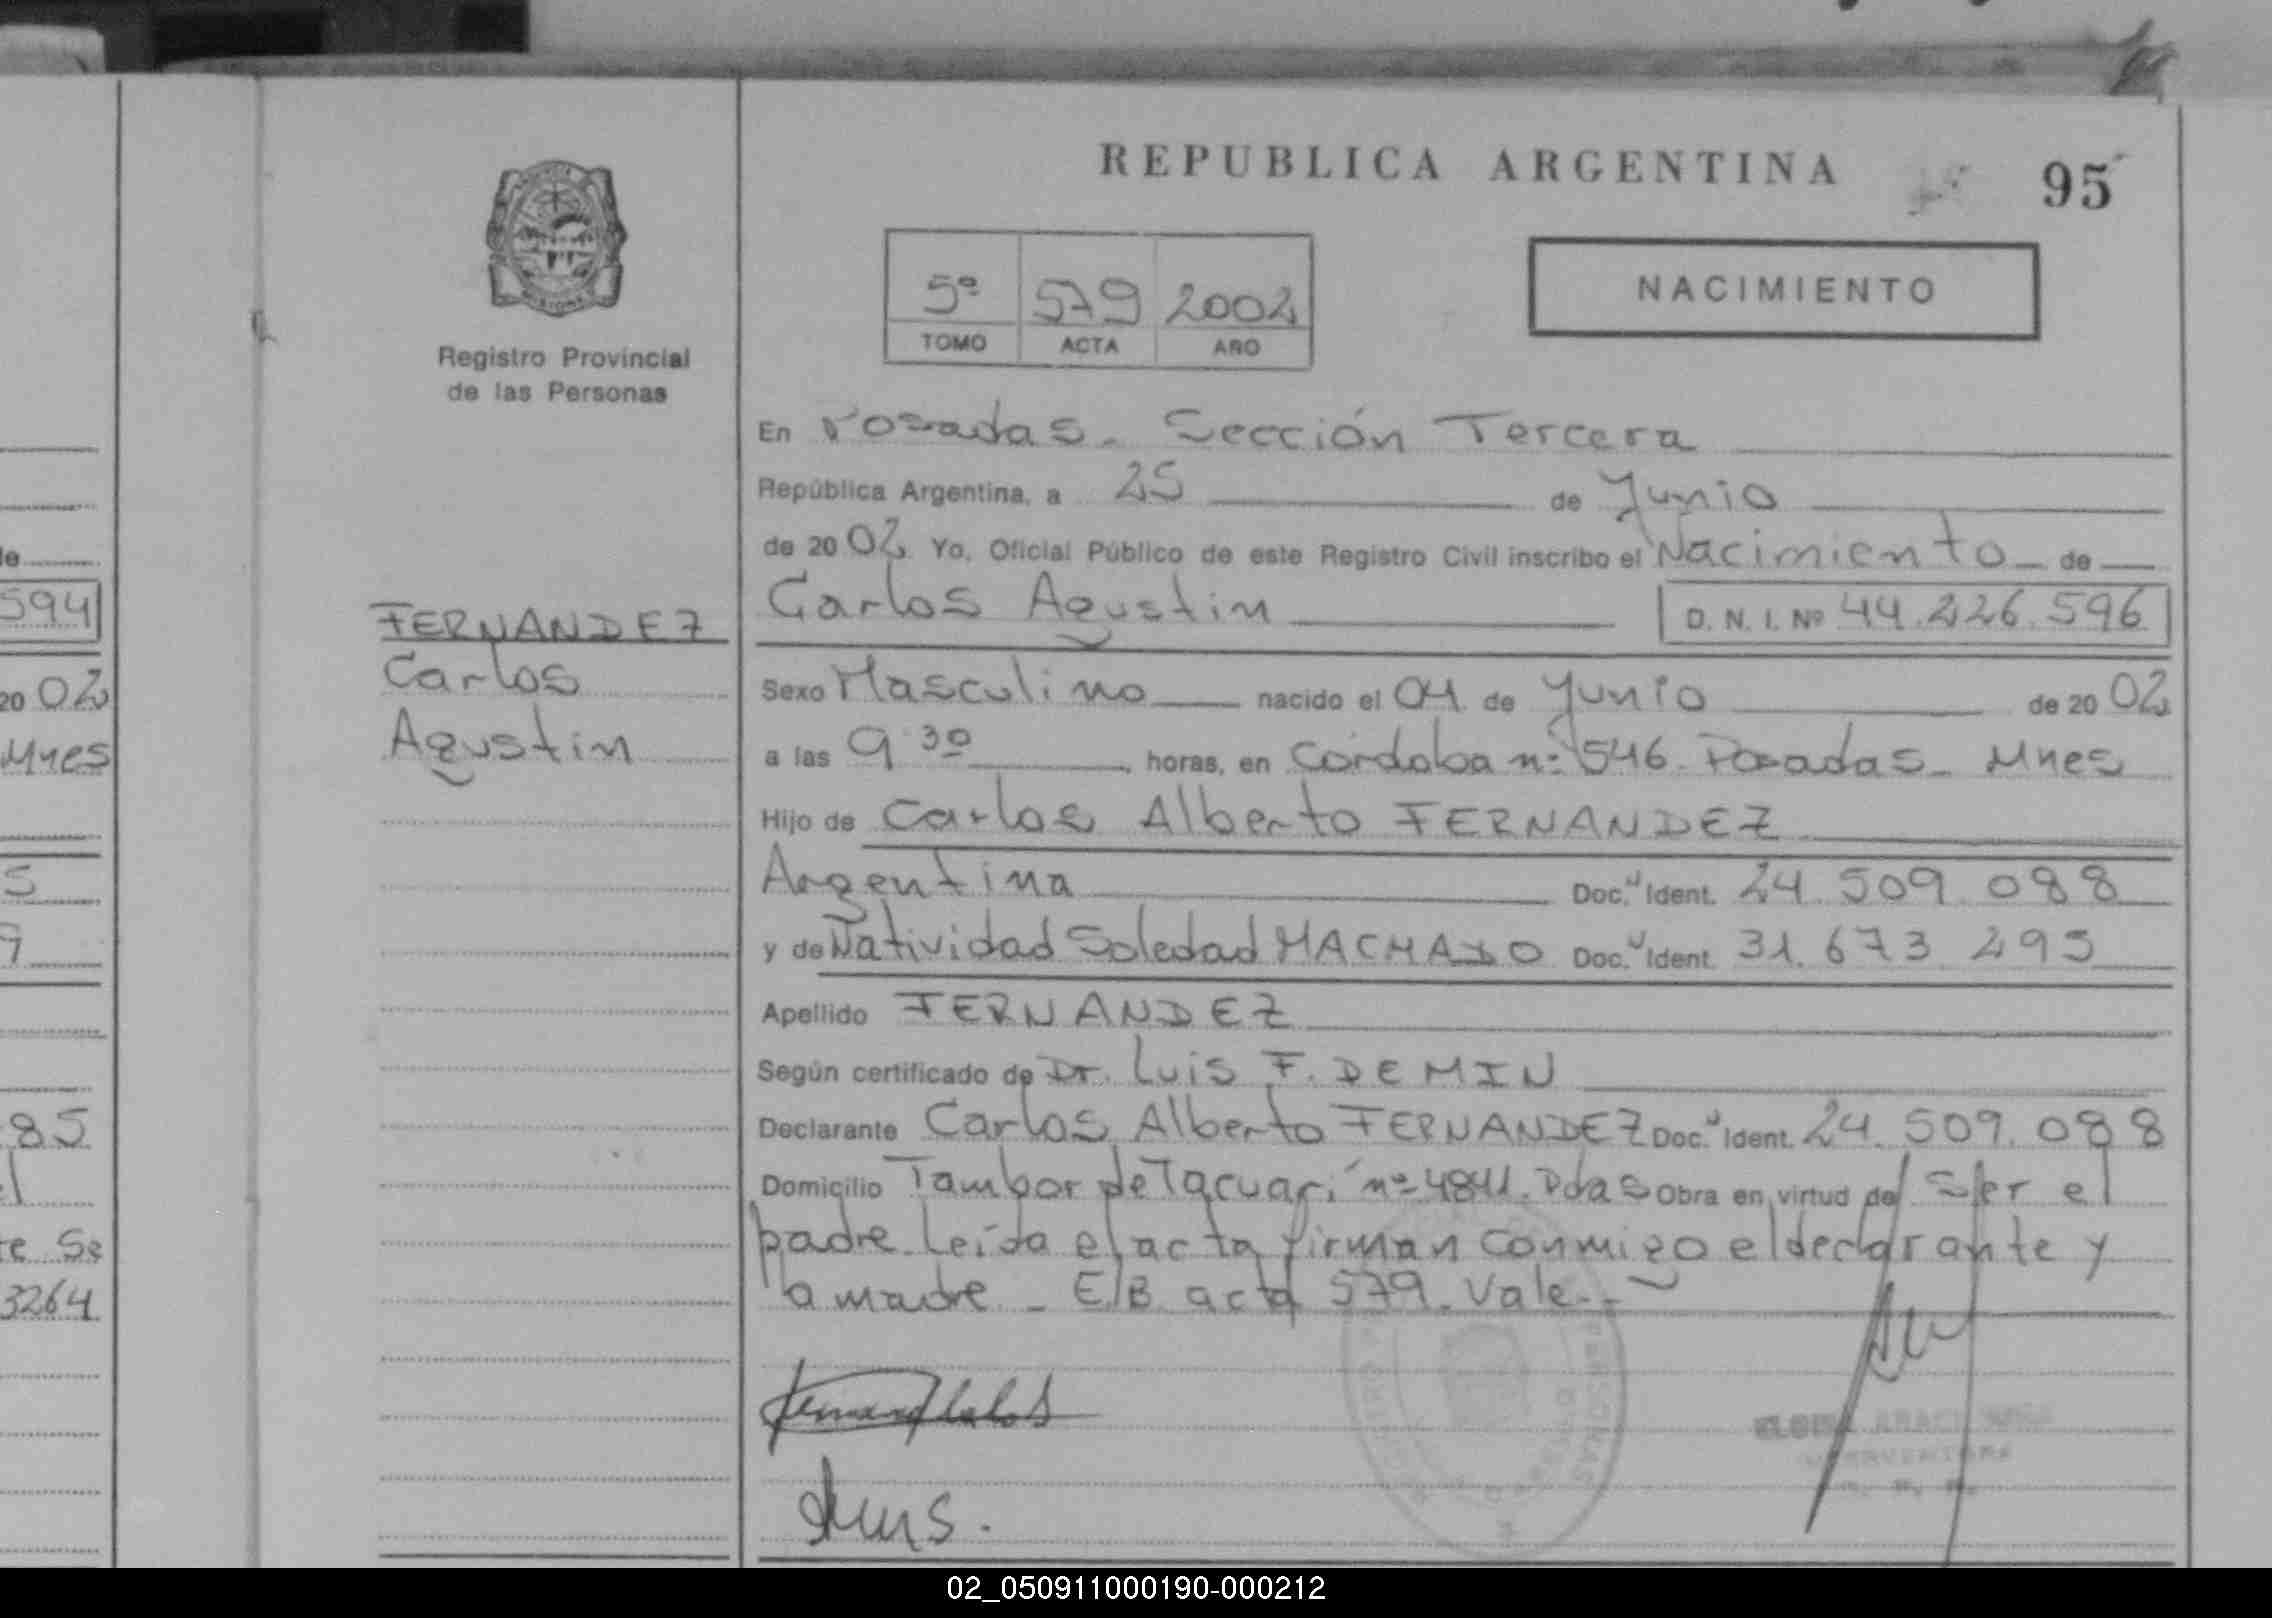 REPUBLICA ARGENTINA
95
NACIMIENTO
5º 579 2002
TOMO ACTA AÑO
Registro Provincial
de las Personas
En Posadas. Sección Tercera
República Argentina, a 25 de Junio
de 2002 Yo, Oficial Público de este Registro Civil inscribo el Nacimiento de
Carlos Agustin D. N. I. Nº 44.226.596
FERNANDEZ
Carlos
Agustin
Sexo Masculino nacido el 04 de Junio de 2002
a las 9 30 horas, en Córdoba nº 546. Posadas. Mnes
Hijo de Carlos Alberto FERNANDEZ
Argentina Doc. Ident. 24.509.088
y de Natividad Soledad MACHADO Doc. Ident. 31.673.295
Apellido FERNANDEZ
Según certificado de Dr. Luis F. DEMIN
Declarante Carlos Alberto FERNANDEZ Doc. Ident. 24.509.088
Domicilio Tambor de Tacuarí nº 4841. Pdas Obra en virtud de Ser el
padre. Leída el acta firman conmigo el declarante y
la madre _ E/B acta 579. Vale.
594
20 02
Mnes
5
9
85
el
te Se
3264
02_050911000190-000212